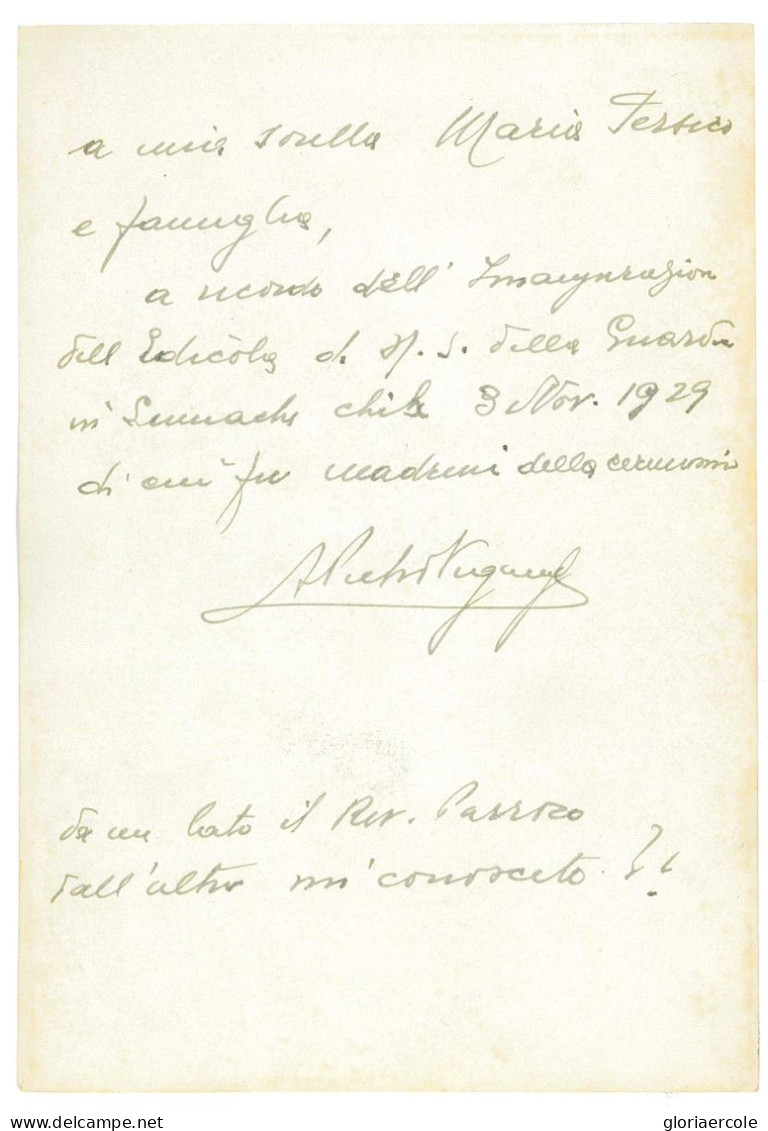 a mia sorella Maria Persico
e famiglia,
a ricordo dell' Inaugurazion
dell Edicola d. N. S. della Guardia
in Limache Chile 3 Nov. 1929
di cui fu madrina della cerimonia
da un lato il Rev. Parroco
dall'altro mi conoscete. ?!
delcampe.net
gloriaercole